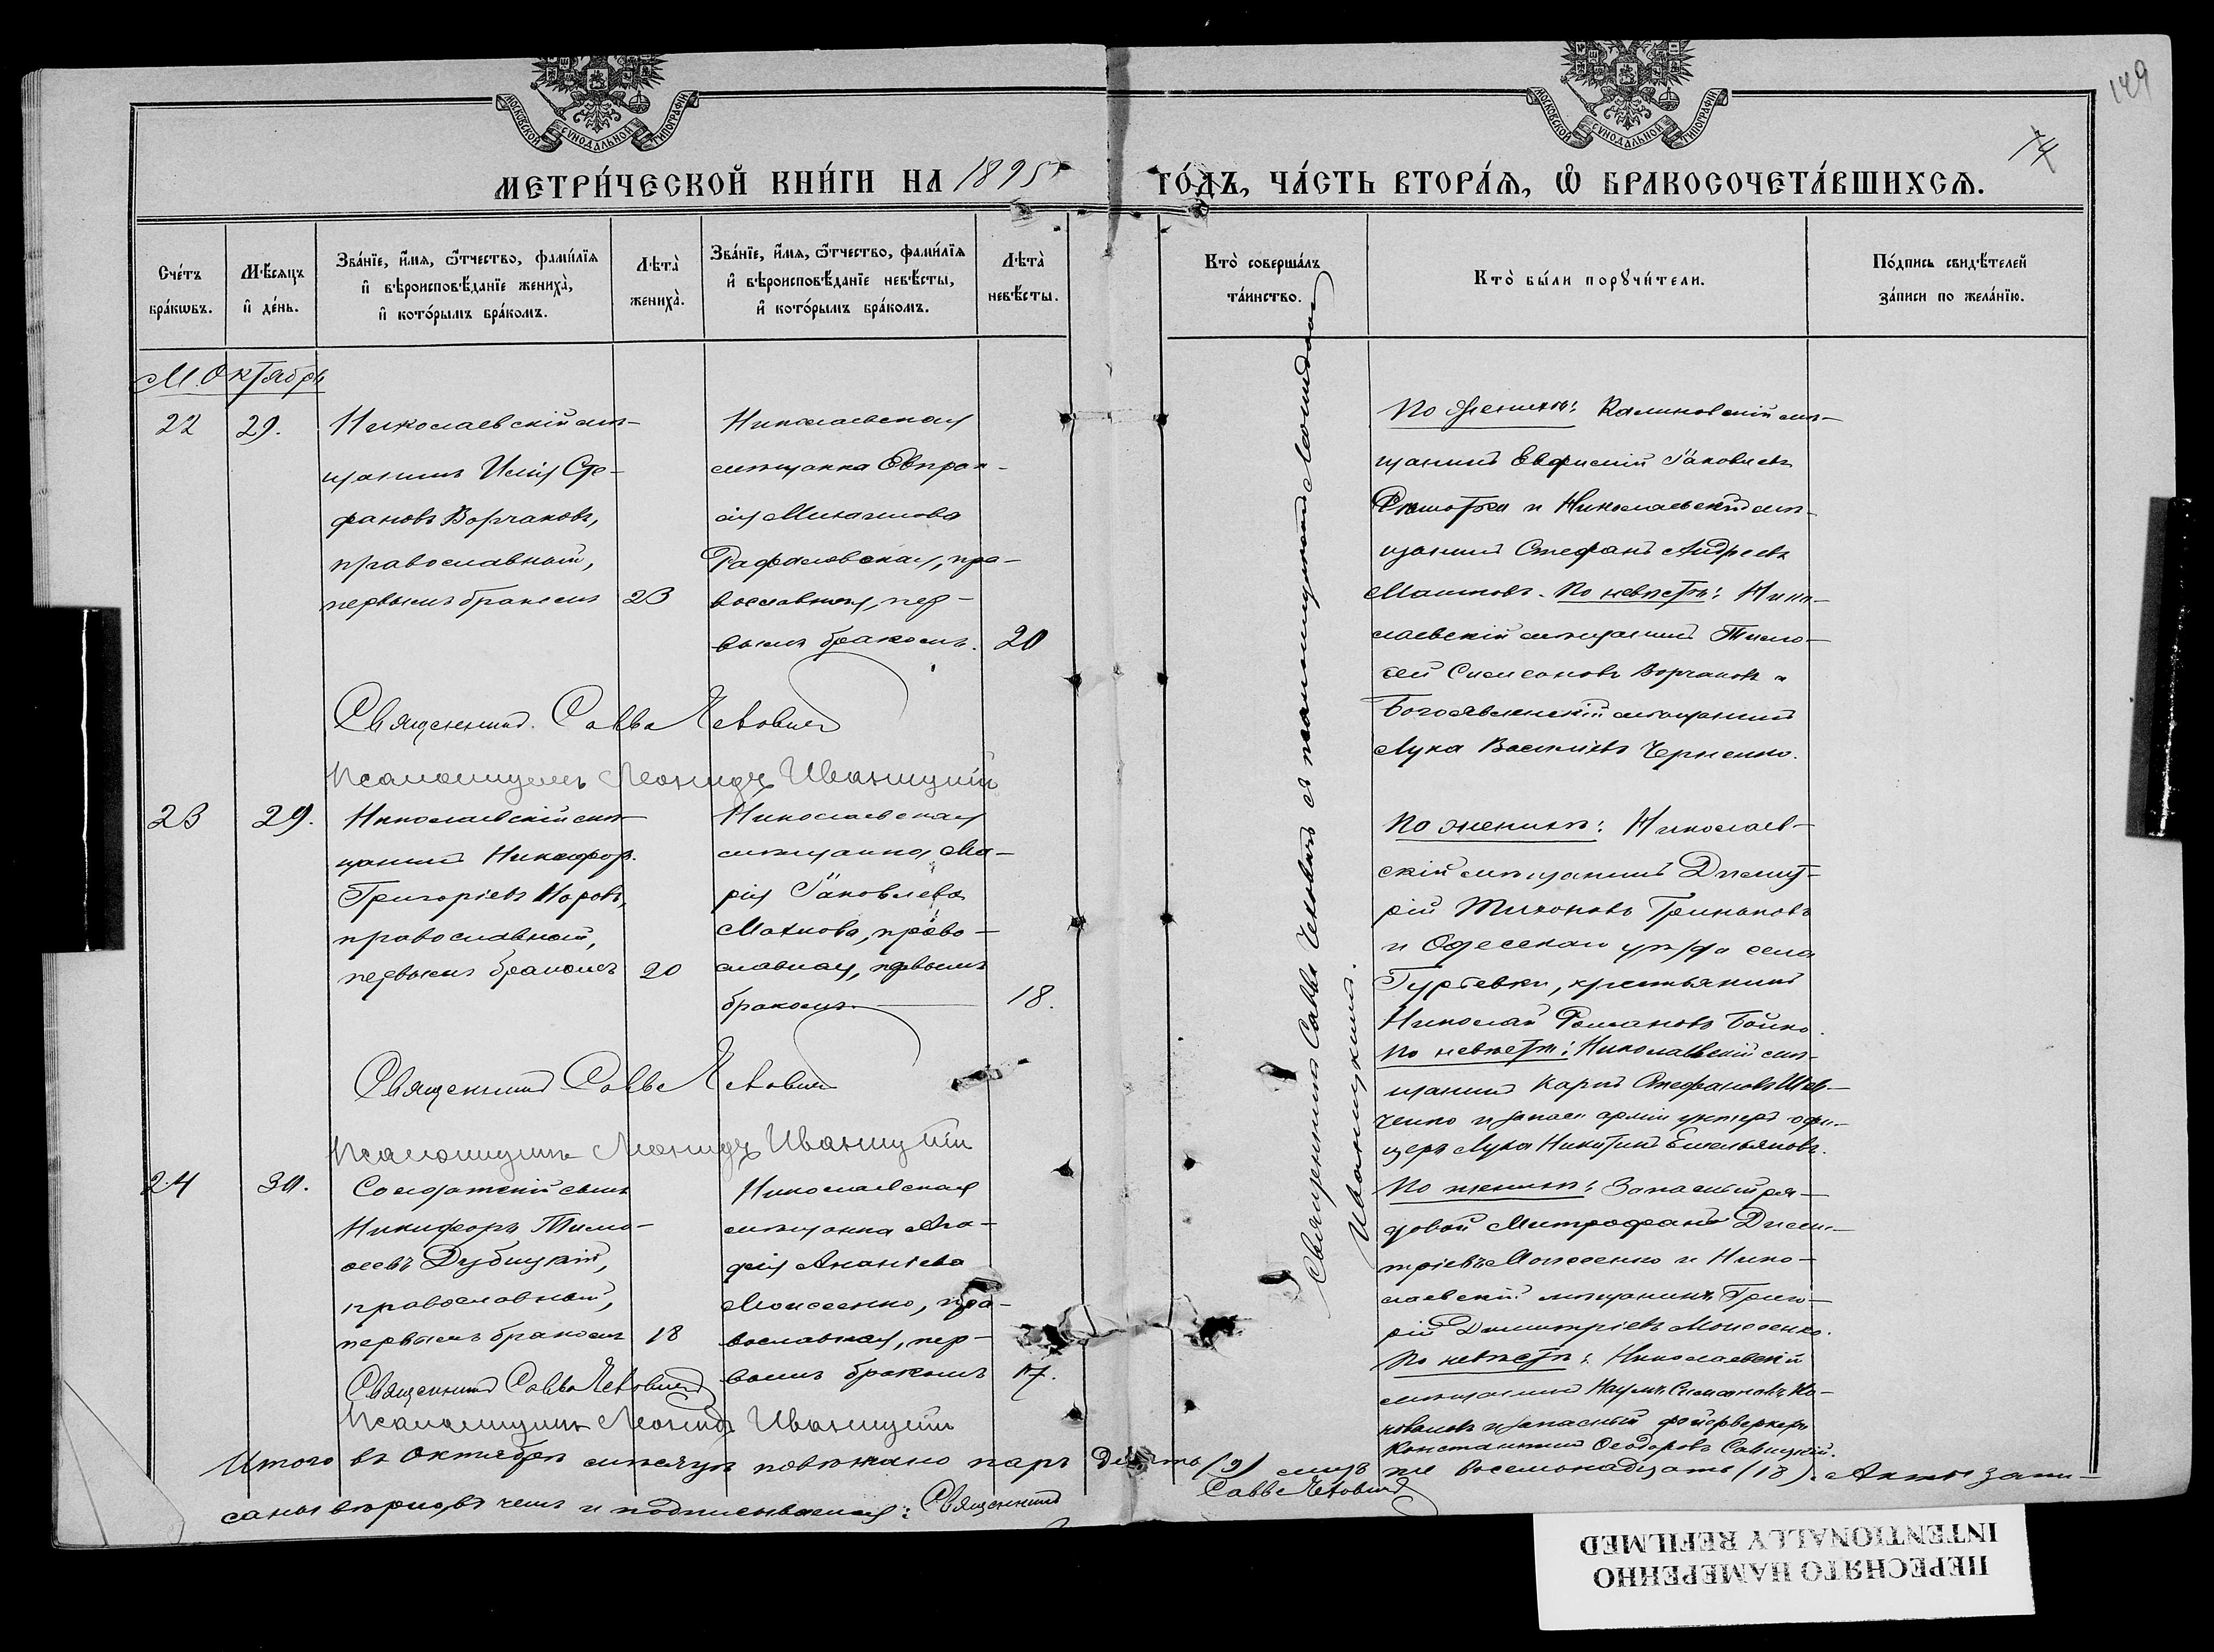 149
14
МОСКОВСКОЙ СѴНОДАЛЬНОЙ ТИПОГРАФІИ
МОСКОВСКОЙ СѴНОДАЛЬНОЙ ТИПОГРАФІИ
МЕТРИ́ЧЕСКОЙ КНИ́ГИ НА 1895
ГО́ДЪ, ЧА́СТЬ ВТОРА́Ѧ, Ѽ БРАКОСОЧЕТА́ВШИХСѦ.
Счетъ браковъ.
Мѣсяцъ и день.
Званіе, имя, отчество, фамилія
и вѣроисповѣданіе жениха,
и которымъ бракомъ.
Лѣта жениха.
Званіе, имя, отчество, фамилія
и вѣроисповѣданіе невѣсты,
и которымъ бракомъ.
Лѣта невѣсты.
Кто совершалъ таинство.
Кто были поручители.
Подпись свидѣтелей
записи по желанію.
М. Октябрь
22
29.
Николаевскій мѣ-
щанинъ Илія Сте-
фановъ Ворчаковъ,
православный,
первымъ бракомъ
23
Николаевская
мѣщанка Евпрак-
сія Михаилова
Рафаловская, пра-
вославная, пер-
вымъ бракомъ.
20
Священникъ Савва Чехович
Псаломщикъ Леонидъ Иваницкій
По женихѣ: Калиновскій мѣ-
щанинъ Евфимій Іаковлевъ
и Николаевскій мѣ-
щанинъ Стефанъ Андреевъ
Машковъ. По невѣстѣ: Нико-
лаевскій мѣщанинъ Тимо-
ѳей Симеоновъ Ворчаковъ и
Богоявленскій мѣщанинъ
Лука Василіевъ Черненко.
23
29.
Николаевскій мѣ-
щанинъ Никифоръ
Григоріевъ Норовъ,
православный,
первымъ бракомъ
20
Николаевская
мѣщанка Ма-
рія Іаковлева
Махнова, право-
славная, первымъ
бракомъ
18.
Священникъ Савва Чехович
Псаломщикъ Леонидъ Иваницкій
По женихѣ: Николаев-
скій мѣщанинъ Димит-
рій Тихоновъ Гринаковъ
и Одесскаго уѣзда села
Гурьевки, крестьянинъ
Николай Романовъ Бойко.
По невѣстѣ: Николаевскій мѣ-
щанинъ Карпъ Стефановъ Шев-
ченко и запаса арміи унтеръ офи-
церъ Лука Никитинъ Емельяновъ.
24
30.
Солдатскій сынъ
Никифоръ Тимо-
ѳеевъ Дубицкій,
православный,
первымъ бракомъ
18
Николаевская
мѣщанка Ага-
фія Ананіева
Моисеенко, пра-
вославная, пер-
вымъ бракомъ
17.
Священникъ Савва Чехович
Псаломщикъ Леонидъ Иваницкій
По женихѣ: Запасный ря-
довой Митрофанъ Дими-
тріевъ Моисеенко и Нико-
лаевскій мѣщанинъ Григо-
рій Димитріевъ Моисеенко.
По невѣстѣ: Николаевскій
мѣщанинъ Наумъ Симоновъ Ко-
новаловъ и запасный фейерверкеръ
Константинъ Ѳеодоровъ Савицкій.
Священникъ Савва Чеховичъ съ псаломщикомъ Леонидомъ
Иваницкимъ.
Итого въ Октябрѣ мѣсяцѣ повѣнчано паръ девять (9) лицъ же восемьнадцать (18). Акты запи-
саны вѣрно, въ чемъ и подписываемся: Священникъ Савва Чехович
ПЕРЕСНЯТО НАМЕРЕННО
INTENTIONALLY REFILMED